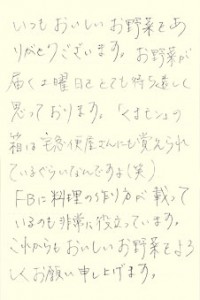 いつもおいしいお野菜をあ
りがとうございます。お野菜が
届く土曜日をとても待ち遠しく
思っております。「くまモン」の
箱は宅急便屋さんにも覚えられ
ているぐらいなんですよ(笑)
FBに料理の作り方が載って
いるのも非常に役立っています。
これからもおいしいお野菜をよろ
しくお願い申し上げます。